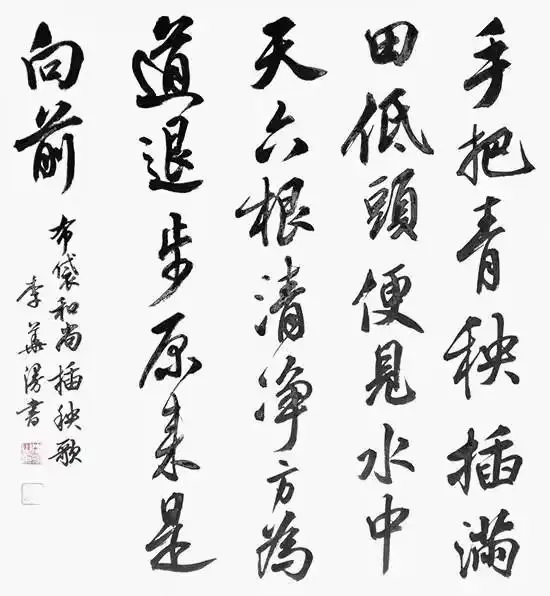 手把青秧插滿
田低頭便見水中
天六根清净方為
道退步原来是
向前
布袋和尚插秧歌
李華漫書